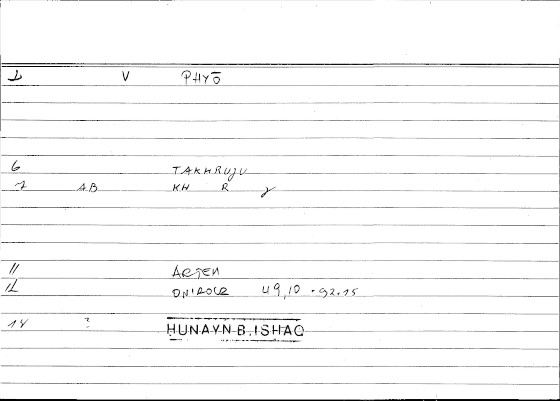 1 V PHYŌ
6 TAKHRUJU
7 AB KH R J
11 ARTEM
12 ONIROCR 49,10 · 92.15
14 ? HUNAYN B. ISHAQ